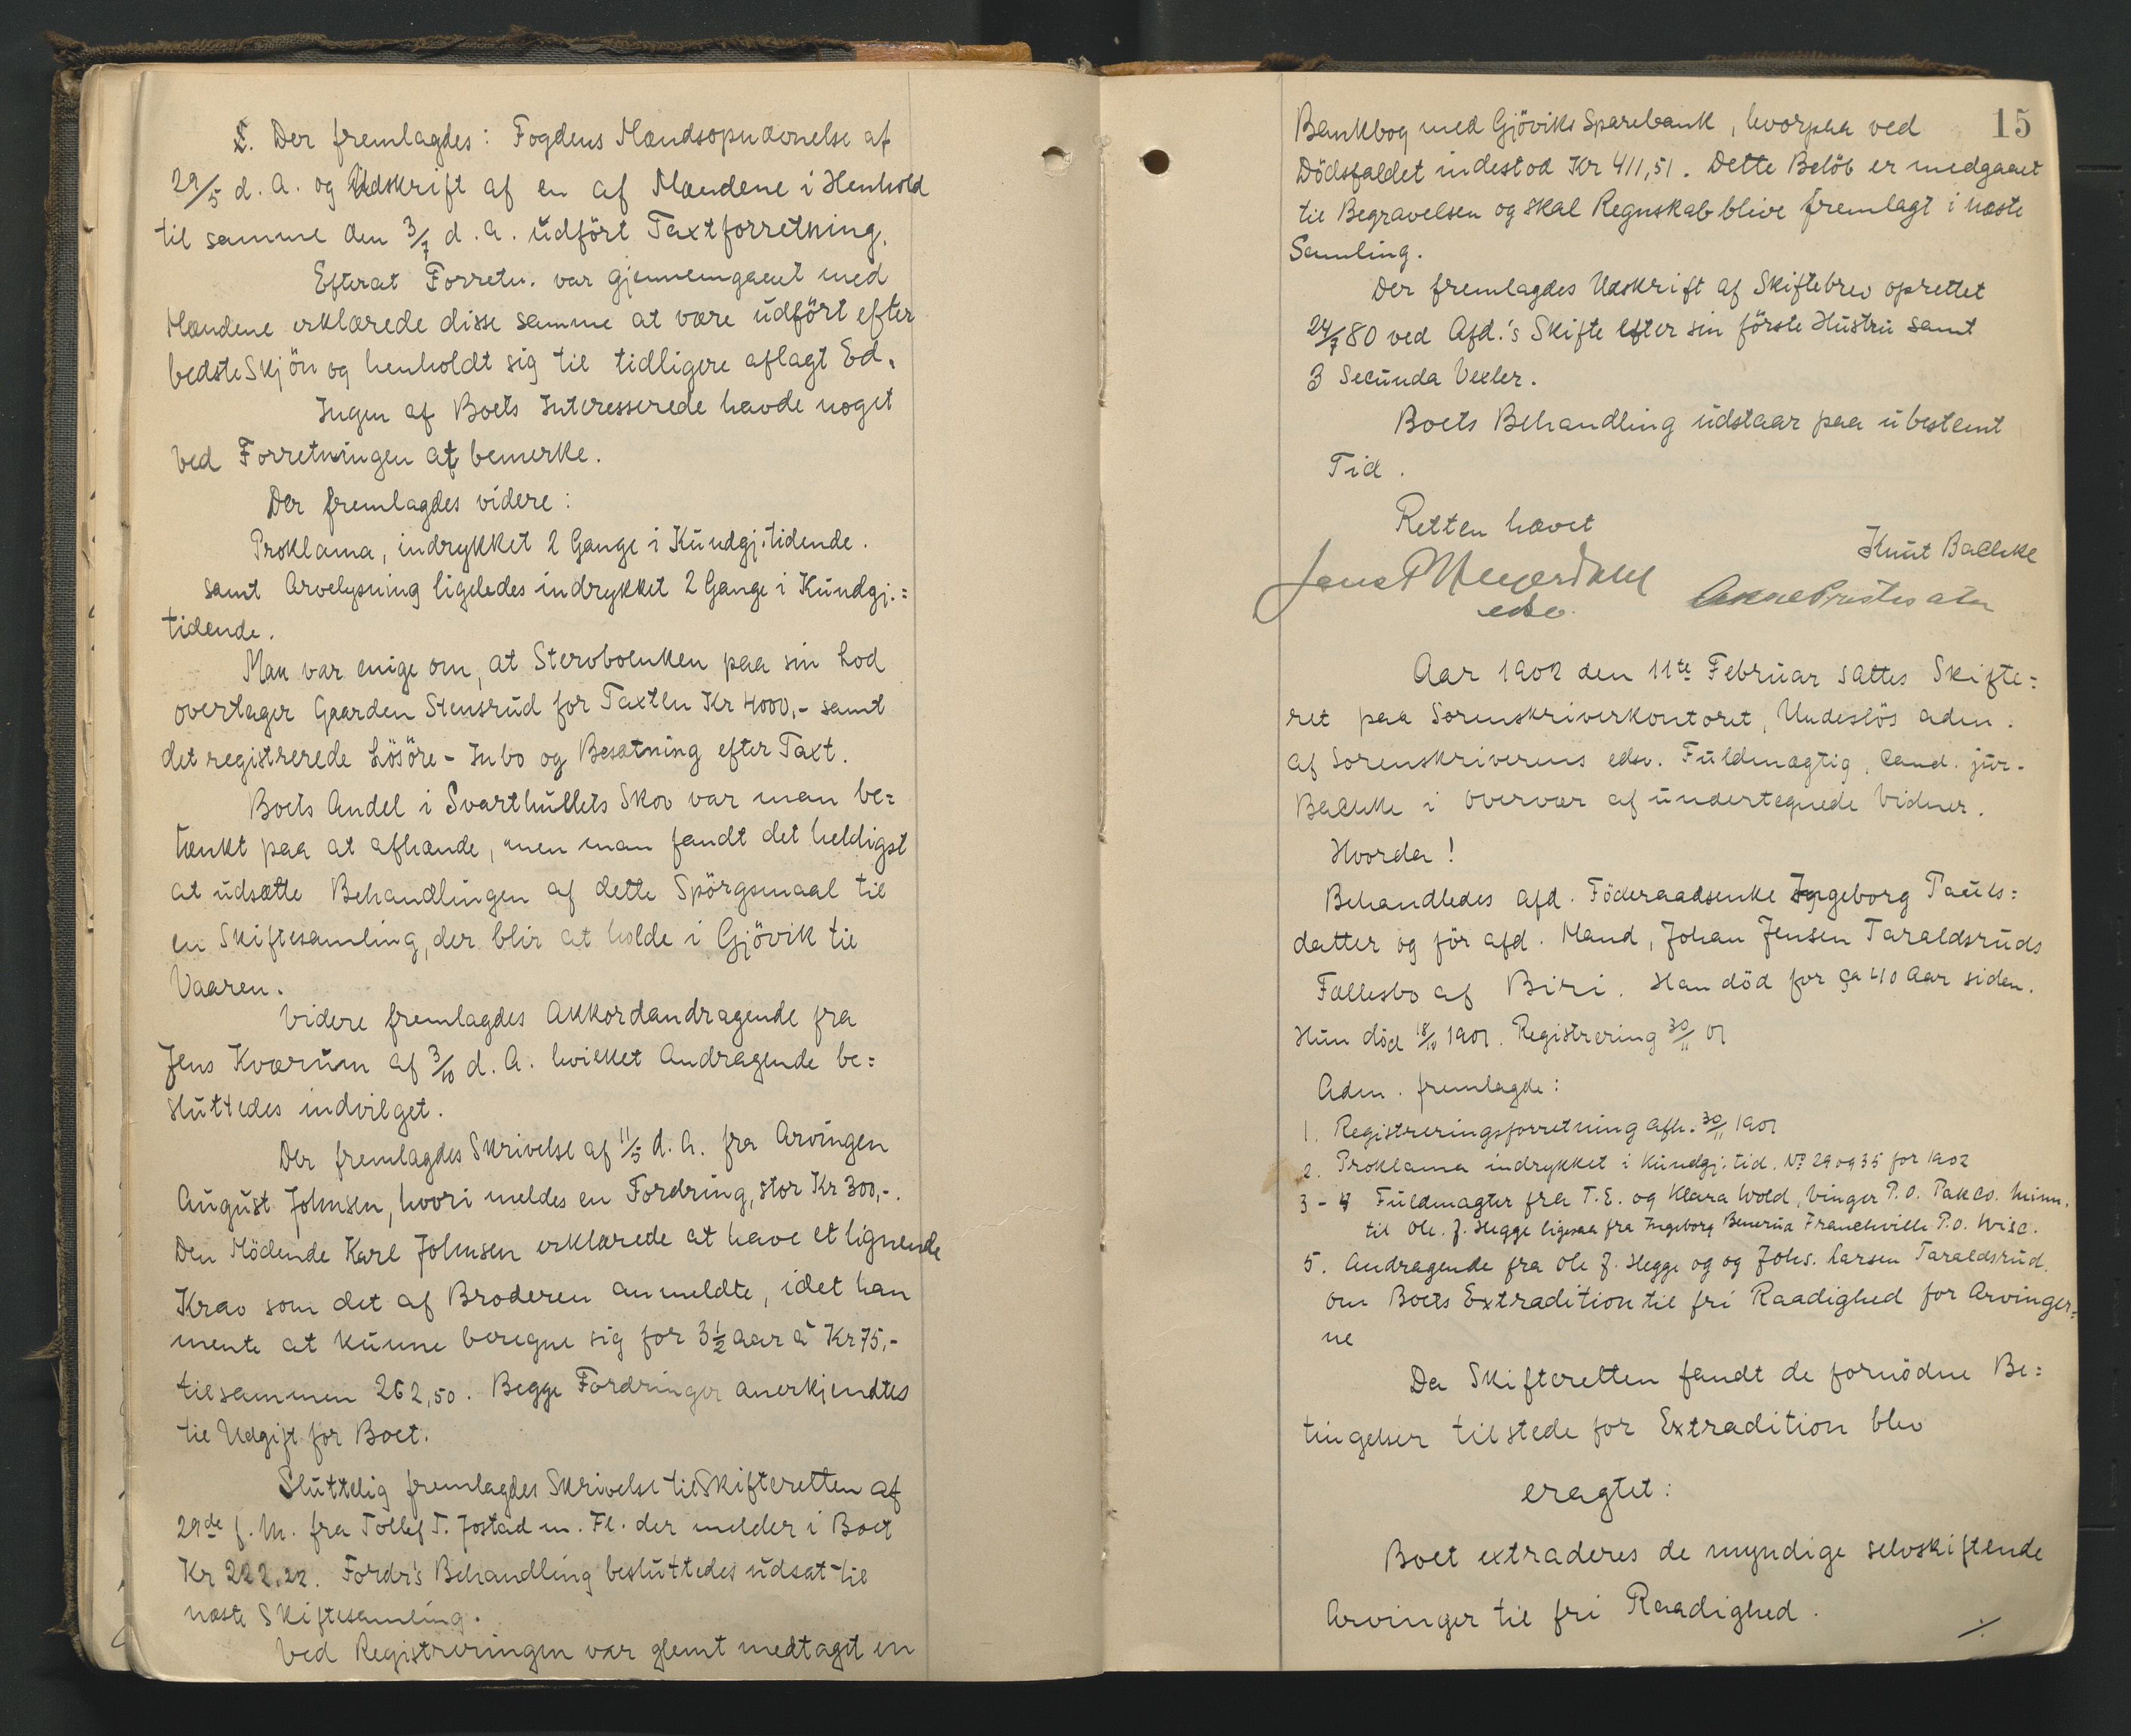 S. Der fremlagdes: Fogdens Mændsopnævnelse af
29/5 d. A. og Udskrift af en af Mændene i Henhold
til samme den 3/7 d. A. udført Taxtforretning.
Efterat Forretn. var gjennemgaaet med
Mændene erklærede disse samme at være udført efter
bedste Skjön og henholdt sig til tidligere aflagt Ed.
Ingen af Boets Interesserede havde noget
ved Forretningen at bemerke.
Der fremlagdes videre:
Proklama, indrykket 2 Gange i Kundgj.tidende.
samt Arvelysning ligeledes indrykket 2 Gange i Kundgj.=
tidende.
Man var enige om, at Stervboenken paa sin Lod
overtager Gaarden Stensrud for Taxten Kr 4000,- samt
det registrerede Lösöre - Inbo og Besætning efter Taxt.
Boets Andel i Svarthullets Skov var man be=
tænkt paa at afhænde, men man fandt det heldigst
at udsætte Behandlingen af dette Spörgsmaal til
en Skiftesamling, der blir at holde i Gjövik til
Vaaren.
Videre fremlagdes Akkordandragende fra
Jens Kværum af 3/10 d. A. hvilket Andragende be=
sluttedes indvilget.
Der fremlagdes Skrivelse af 11/5 d. A. fra Arvingen
August Johnsen, hvori meldes en Fordring, stor Kr 300,-.
Den Mödende Karl Johnsen erklærede at have et lignende
Krav som det af Broderen anmeldte, idet han
mente at kunne beregne sig for 3½ Aar à Kr 75,-
tilsammen 262,50. Begge Fordringer anerkjendtes
til Udgift for Boet.
Sluttelig fremlagdes Skrivelse til Skifteretten af
29de f. M. fra Tollef T. Jostad m. Fl. der melder i Boet
Kr 222.22. Fordr's Behandling besluttedes udsat til
næste Skiftesamling.
Ved Registreringen var glemt medtaget en
15
Bankbog med Gjöviks Sparebank, hvorpaa ved
Dödsfaldet indestod Kr 411,51. Dette Belöb er medgaaet
til Begravelsen og skal Regnskab blive fremlagt i næste
Samling.
Der fremlagdes Udskrift af Skiftebrev oprettet
24/7 80 ved Afd.'s Skifte efter sin förste Hustru samt
3 Secunda Vexler.
Boets Behandling udstaar paa ubestemt
Tid.
Retten hævet
Knut Baehke
Jens P Meyerdahl
edsv.
Aar 1902 den 11te Februar sattes Skifte=
ret paa Sorenskriverkontoret, Undeslös adm.
af Sorenskriverens edsv. Fuldmægtig, Cand. jur.
Baehke i Overvær af undertegnede Vidner.
Hvorda!
Behandledes afd. Föderaadsenke Ingeborg Pauls=
datter og för afd. Mand, Johan Jensen Taraldsruds
Fællesbo af Biri. Han död for ca 40 Aar siden.
Hun död 18/10 1901. Registrering 30/11 01
Adm. fremlagde:
1. Registreringsforretning afh. 30/11 1901
2. Proklama indrykket i Kundgj.tid. No 29 og 35 for 1902
3 - 4 Fuldmagter fra T. E. og Klara Wold, Vinger P.O. Pak Co. Minn.
til Ole. J. Hegge ligesaa fra Ingeborg Francheville P.O. Wisc.
5. Andragende fra Ole J. Hegge og og Johs. Larsen Taraldsrud.
om Boets Extradition til fri Raadighed for Arvinger=
ne
Da Skifteretten fandt de fornödne Be=
tingelser tilstede for Extradition blev
eragtet:
Boet extraderes de myndige selvskiftende
Arvinger til fri Raadighed.